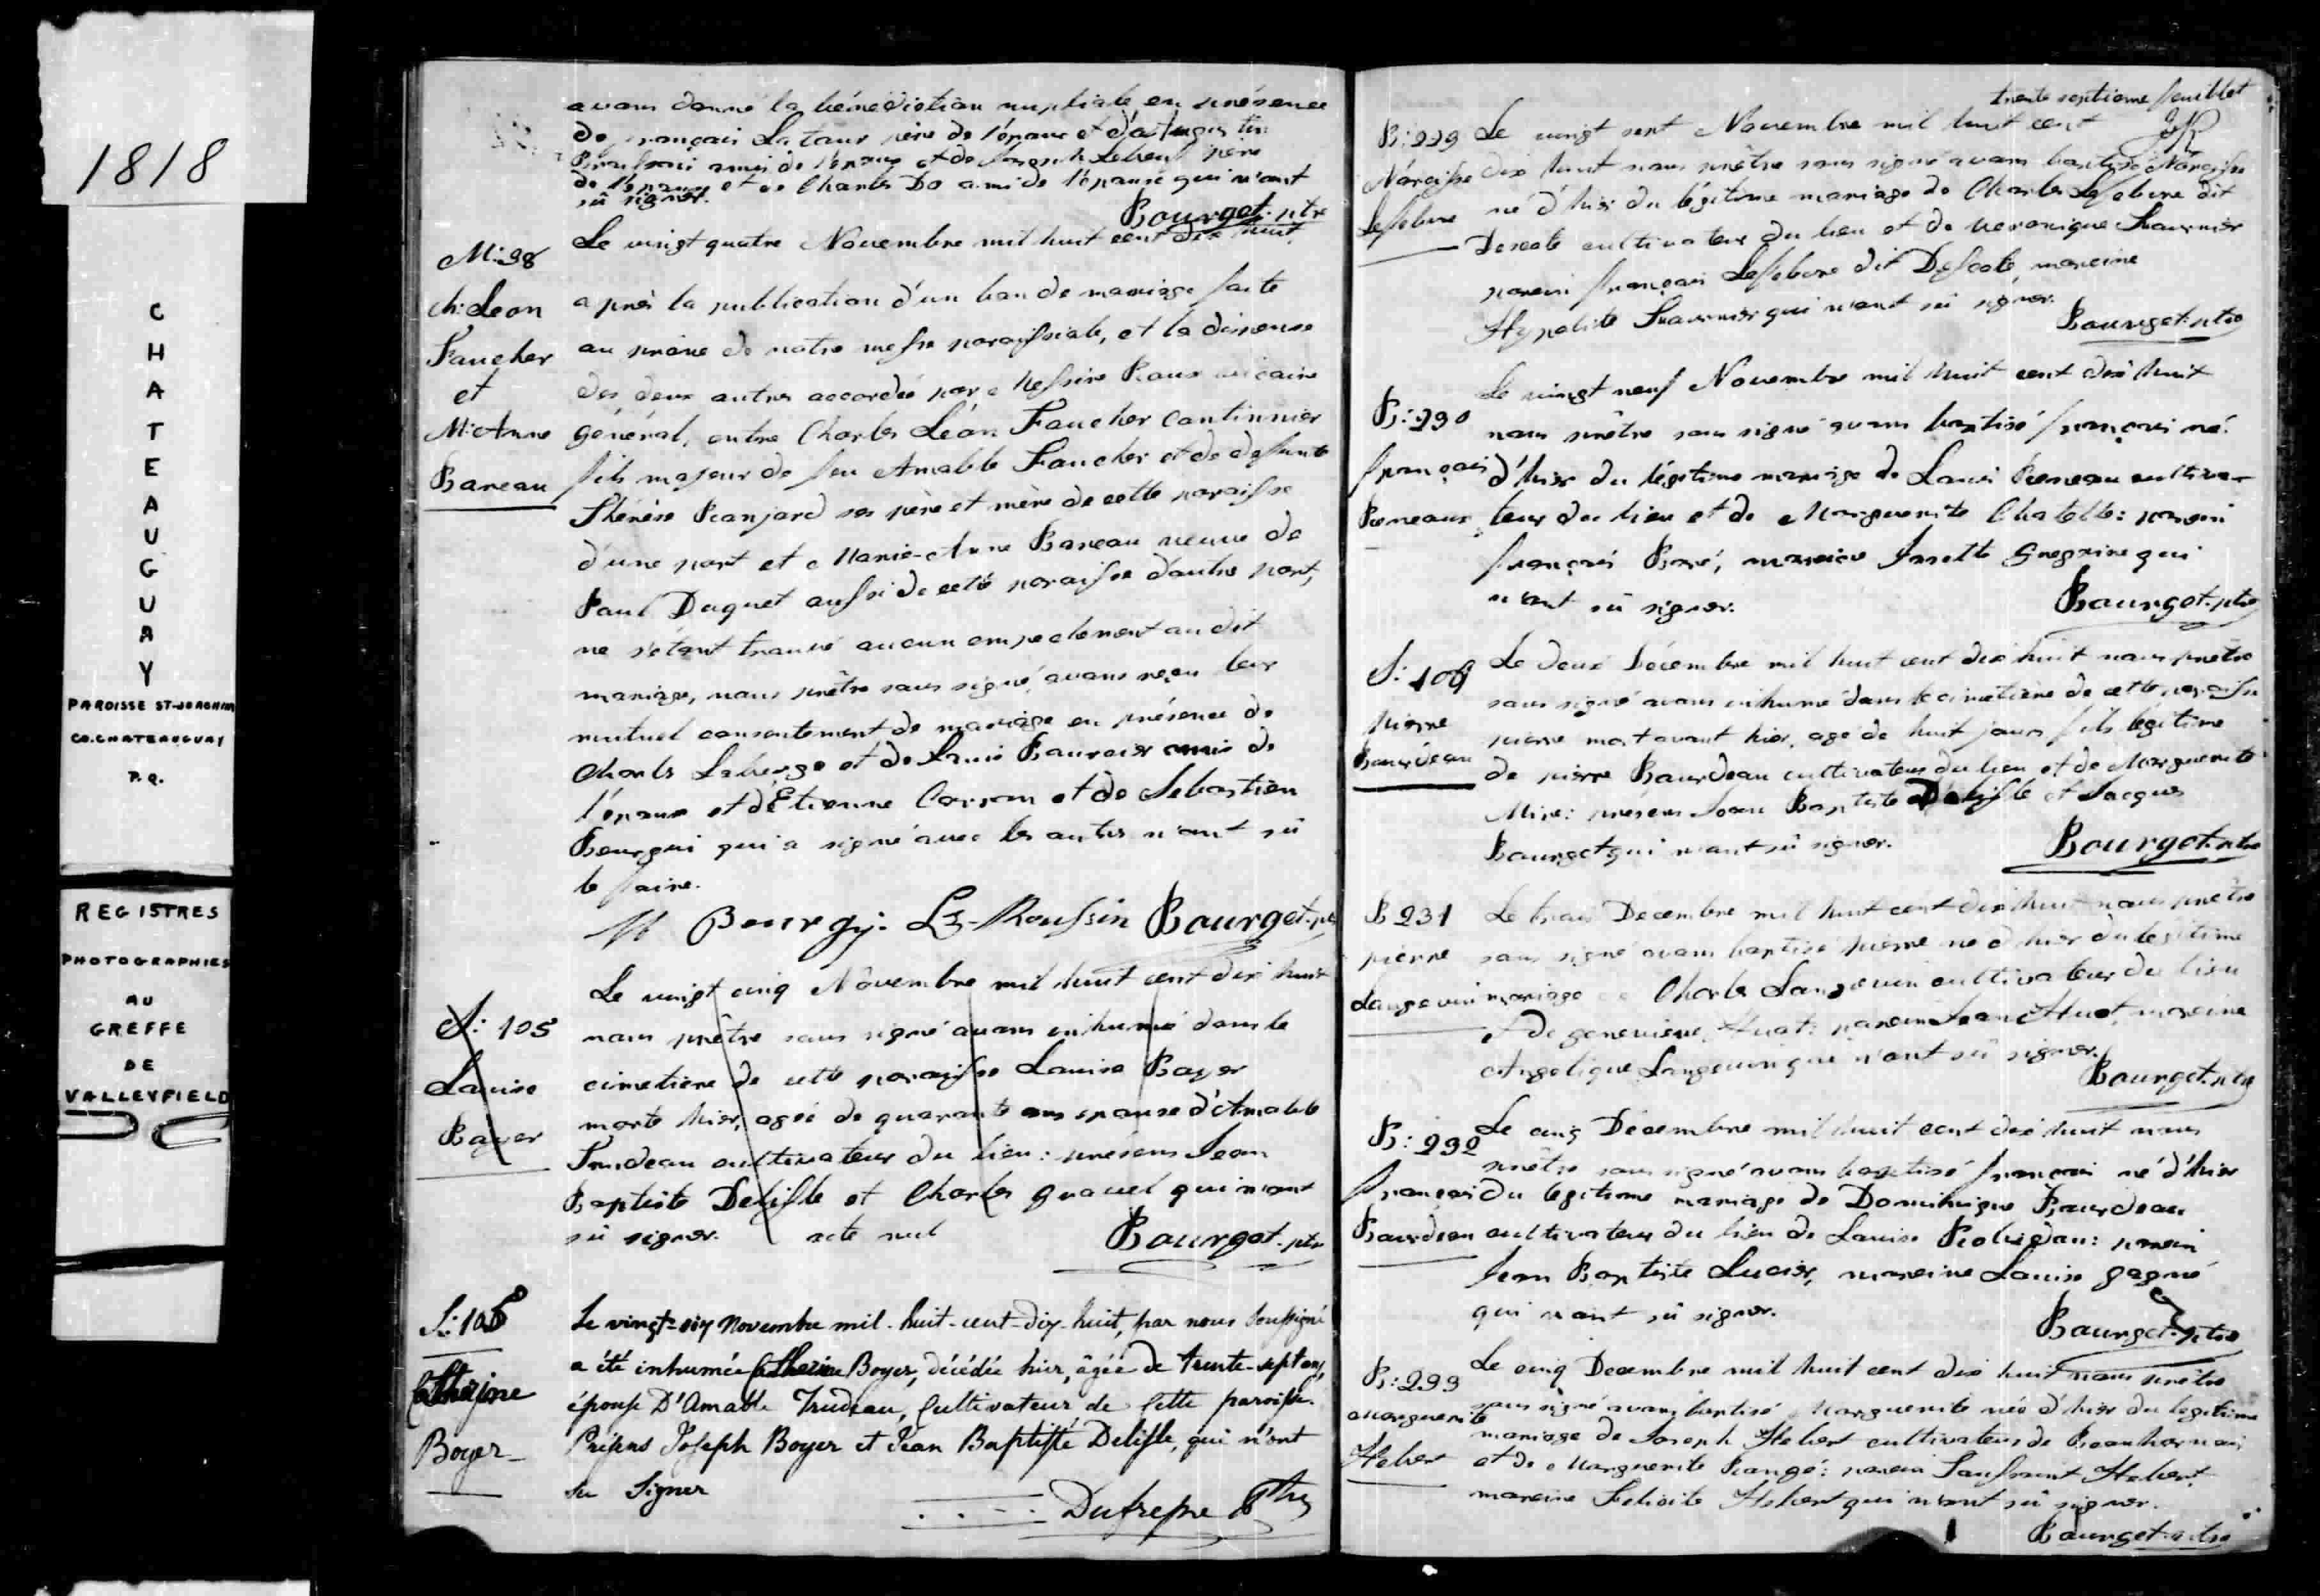 1818
CHATEAUGUAY
PAROISSE ST-JOACHIM
CO. CHATEAUGUAY
P.Q.
REGISTRES
PHOTOGRAPHIES
AU
GREFFE
DE
VALLEYFIELD
avons donné la bénédiction nuptiale en présence
de françois Latour père de l'époux et
amis de l'époux et de Joseph Lebeuf père
de l'épouse et de Charles Do ami de l'épouse qui n'ont
sû signer.
Bourget ptre
M: 38
ch: Leon
Faucher
et
M: Anne
Bareau
Le vingt quatre Novembre mil huit cent dix huit
après la publication d'un ban de mariage faite
au prône de notre messe paroissiale, et la dispense
des deux autres accordée par Messire Roux vicaire
général, entre Charles Léon Faucher cantinnier
fils majeur de feu Amable Faucher et de defunte
Thérèse Ranjard ses père et mère de cette paroisse
d'une part et Marie-Anne Bareau veuve de
Paul Duquet aussi de cette paroisse d'autre part,
ne s'étant trouvé aucun empechement au dit
mariage, nous prêtre sous signé, avons reçu leur
mutuel consentement de mariage en présence de
Charles Laberge et de Louis amis de
l'époux et d'Etienne et de Sebastien
Bourgui qui a signé avec les autres n'ont sû
le faire.
Bourgy: Ls-Roussin Bourget ptre
S: 105
Louise
Bayer
Le vingt cinq Novembre mil huit cent dix huit
nous prêtre sous signé avons inhumé dans le
cimetière de cette paroisse Louise Bayer
morte hier, agée de quarante ans epouse d'Amable
Trudeau cultivateur du lieu: présens Jean
Baptiste Delisle et Charles gravel qui n'ont
sû signer. acte nul
Bourget ptre
S: 105
Catherine
Boyer
Le vingt-six Novembre mil-huit-cent-dix-huit, par nous soussigné
a été inhumée Catherine Boyer, décédée hier, âgée de trente-sept ans,
épouse D'Amable Trudeau, Cultivateur de Cette paroisse.
Présens Joseph Boyer et Jean Baptiste Delisle, qui n'ont
su Signer
Dufresne Ptre
trente septieme feuillet
B: 229
Narcisse
Lefebvre
Le vingt sept Novembre mil huit cent
dix huit nous prêtre sous signé avons baptisé Narcisse
né d'hier du légitime mariage de Charles Lefebvre dit
Descote cultivateur du lieu et de veronique Tournier
parein françois Lefebvre dit Descote, mareine
Hypolite qui n'ont sû signer.
Bourget ptre
B: 230
françois
Le vingt neuf Novembre mil huit cent dix huit
nous prêtre sous signé avons baptisé françois né
d'hier du légitime mariage de Louis cultiva-
teur du lieu et de Marguerite Chatelle: parein
françois Paré, mareine Josette gregoire qui
n'ont sû signer.
Bourget ptre
S: 106
pierre
Bourdeau
Le deux Décembre mil huit cent dix huit nous prêtre
sous signé avons inhumé dans le cimetière de cette paroisse
pierre mort avant hier, agé de huit jours fils légitime
de pierre Bourdeau cultivateur du lieu et de Marguerite
présens Jean Baptiste Delisle et Jacques
Bourget qui n'ont sû signer.
Bourget ptre
B 231
pierre
Langevin
Le trois Decembre mil huit cent dix huit nous prêtre
sous signé avons baptisé pierre né d'hier du legitime
mariage de Charles Langevin cultivateur du lieu
et de genevieve Huot: parein Jean Huot, mareine
Angelique Langevin qui n'ont sû signer.
Bourget ptre
B: 232
françois
Bourdeau
Le cinq Décembre mil huit cent dix huit nous
prêtre sous signé avons baptisé françois né d'hier
du legitime mariage de Dominique Bourdeau
cultivateur du lieu de Louise Robidoux: parein
Jean Baptiste Lucier, mareine Louise gagné
qui n'ont sû signer.
Bourget ptre
B: 233
Marguerite
Hebert
Le cinq Decembre mil huit cent dix huit nous prêtre
sous signé avons baptisé Marguerite née d'hier du legitime
mariage de Joseph Hebert cultivateur de Beauharnois
et de Marguerite: parein Toussaint Hebert
mareine Felicite Hebert qui n'ont sû signer.
Bourget ptre